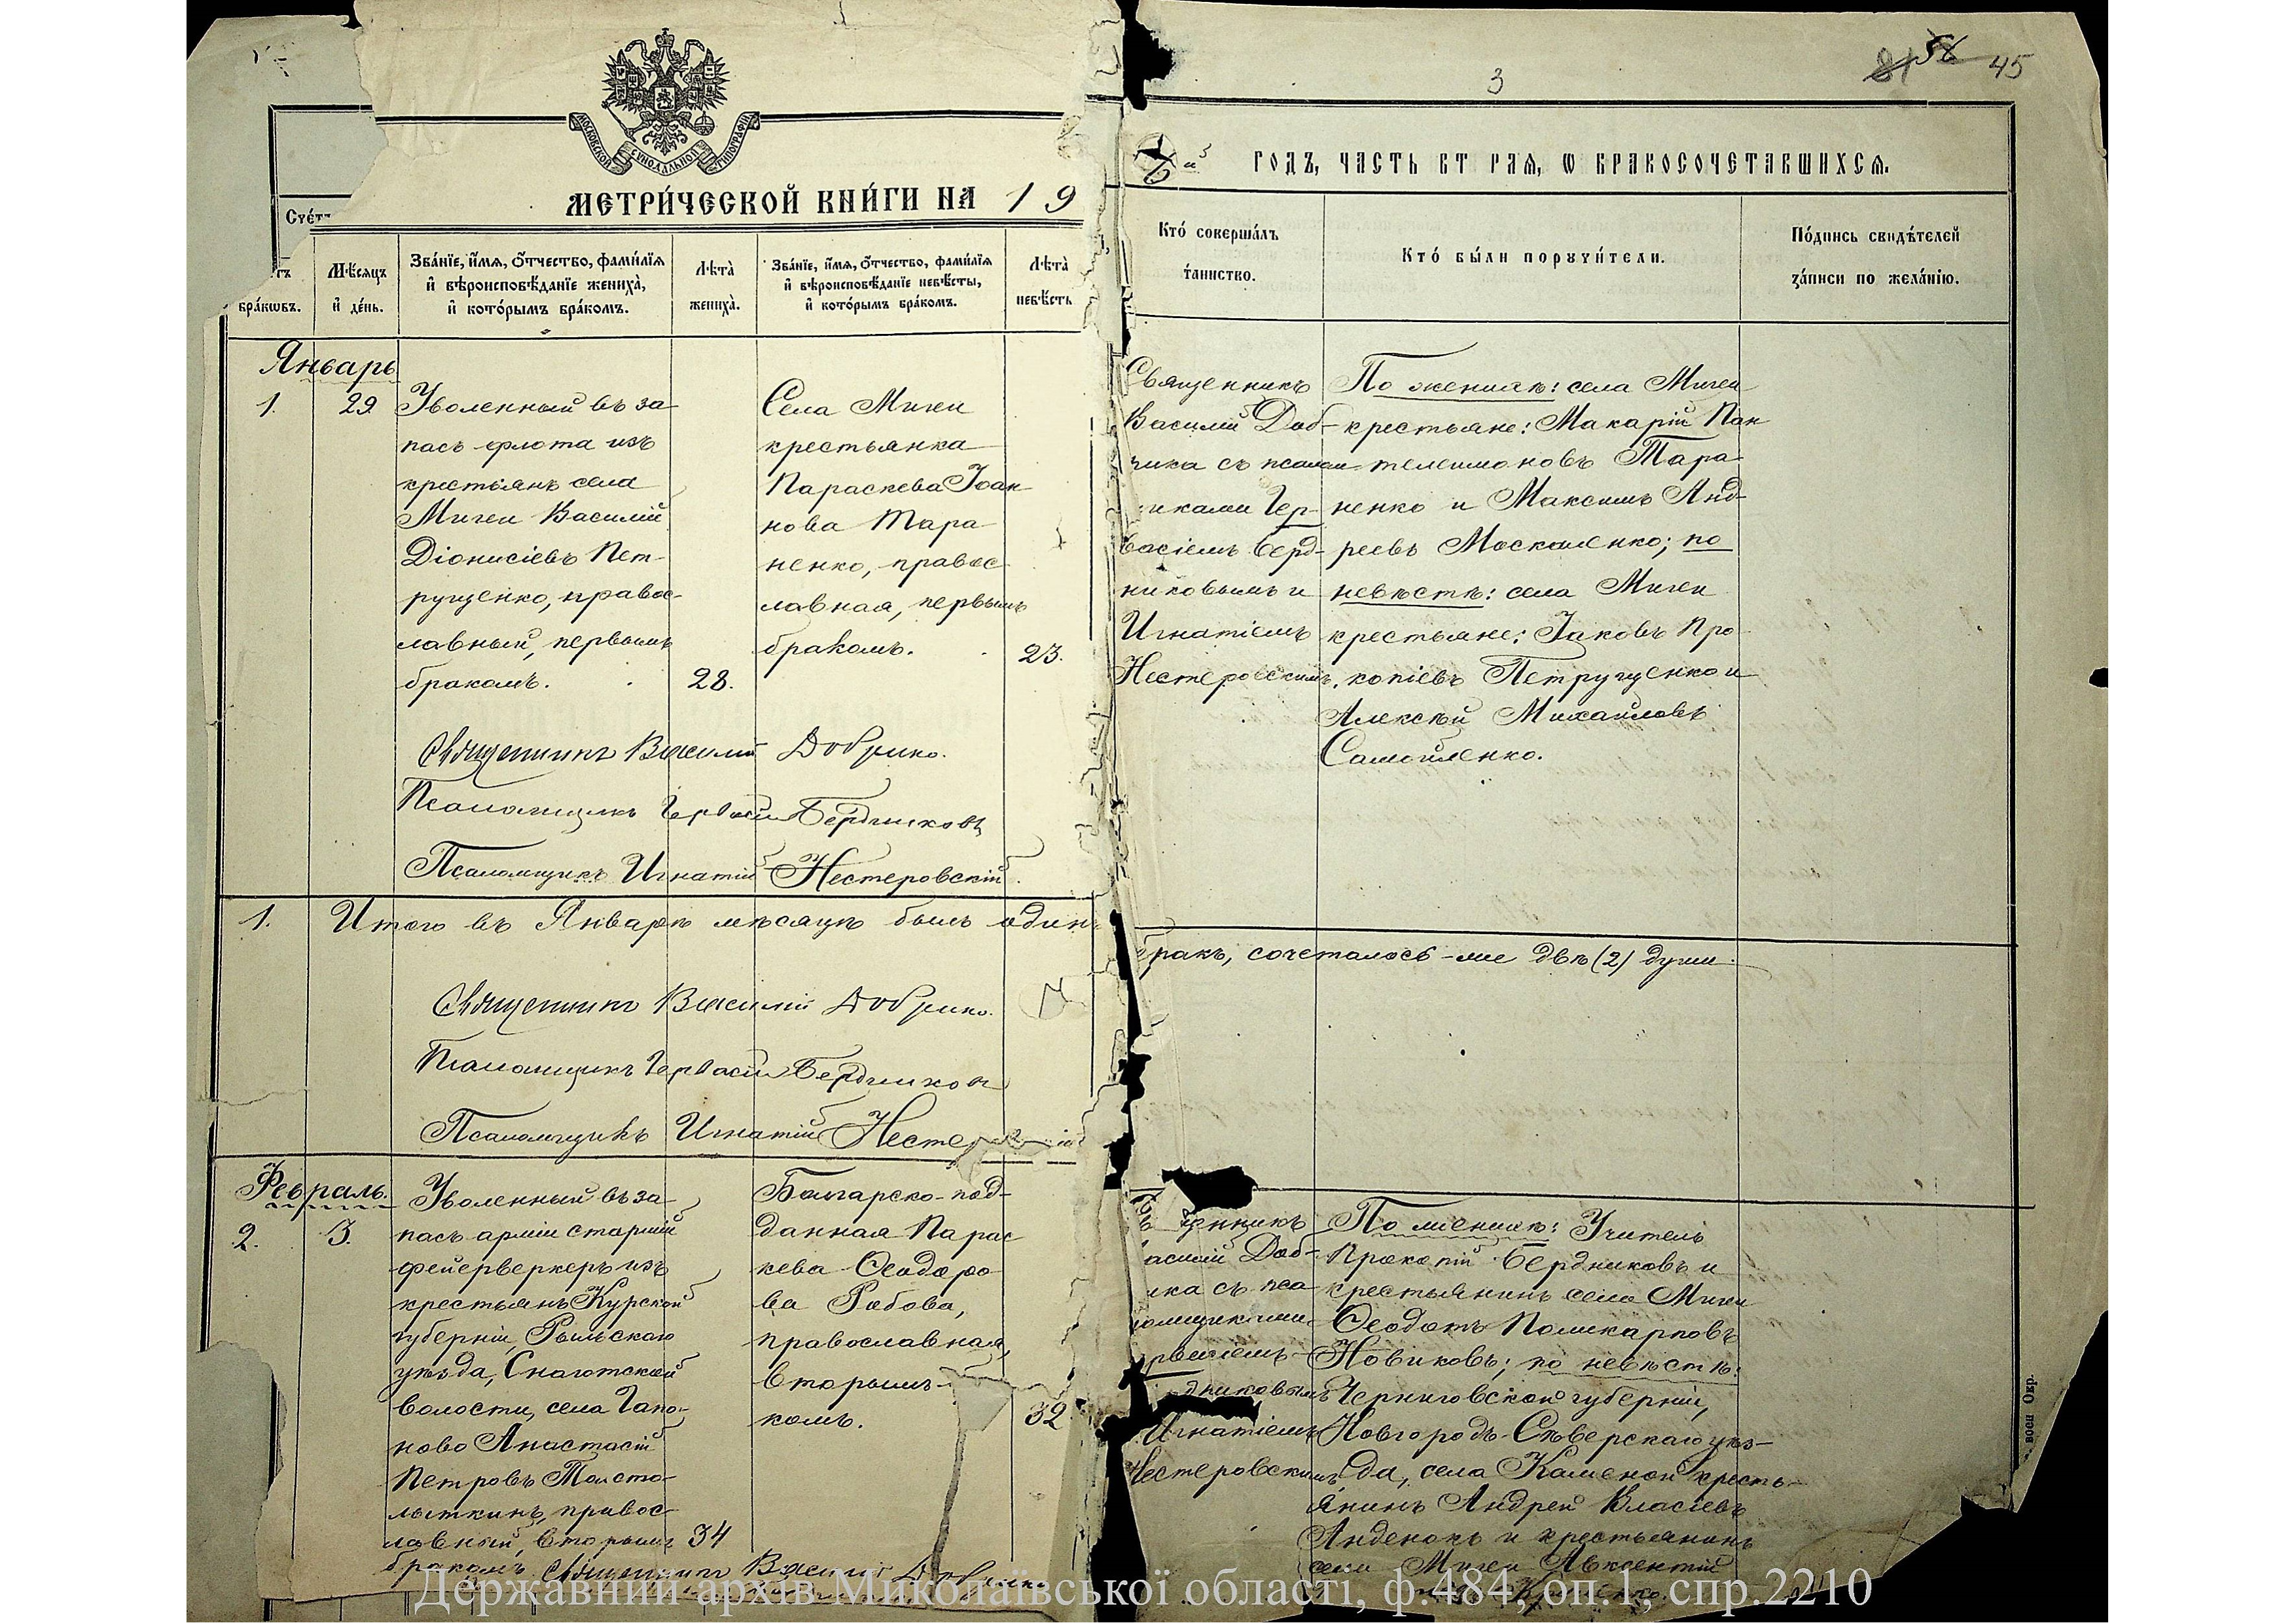 3
81 56 45
МОСКОВСКОЙ СУНОДАЛЬНОЙ ТИПОГРАФІИ
МЕТРИ́ЧЕСКОЙ КНИ́ГИ НА 19
ГОДЪ, ЧАСТЬ ВТ РАЯ, Ѡ БРАКОСОЧЕТАВШИХСЯ.
Счéт
бра́кѡвъ.
Мѣ́сяцъ
и҆ де́нь.
Зва́нїе, и҆́мя, ѻ҆́тчество, фами́лїя
и҆ вѣроисповѣ́данїе жениха̀,
и҆ кото́рымъ бра́комъ.
Лѣта̀
жениха̀.
Зва́нїе, и҆́мя, ѻ҆́тчество, фами́лїя
и҆ вѣроисповѣ́данїе невѣ́сты,
и҆ кото́рымъ бра́комъ.
Лѣта̀
невѣ́сть
Кто́ соверша́лъ
та́инство.
Кто́ бы́ли порꙋчи́тели.
По́дпись свидѣ́телей
за́писи по жела́нїю.
Январь
1.
29.
Уволенный въ за-
пасъ флота изъ
крестьянъ села
Мигеи Василій
Діонисіевъ Пет-
рущенко, правос-
лавный, первымъ
бракомъ.
28.
Села Мигеи
крестьянка
Параскева Іоан
нова Тара-
ненко, правос-
лавная, первымъ
бракомъ.
23.
Священникъ
Василій Доб-
рика съ псалом
иками Гер-
васіемъ Берд-
никовымъ и
Игнатіемъ
Нестеровскимъ.
По женихѣ: села Мигеи
крестьяне: Макарій Пан
телеимоновъ Тара-
ненко и Максимъ Анд-
реевъ Москаленко; по
невѣстѣ: села Мигеи
крестьяне: Іаковъ Про-
копіевъ Петрущенко и
Алексѣй Михайловъ
Самойленко.
Священникъ Василій Добрико.
Псаломщикъ Гервасій Бердниковъ
Псаломщикъ Игнатій Нестеровскій.
1. Итого въ Январѣ мѣсяцѣ былъ одинъ
бракъ, сочеталось-же двѣ (2) души.
Священникъ Василій Добрико.
Псаломщикъ Гервасій Бердниковъ
Псаломщикъ Игнатій Нестер
Февраль.
2.
3.
Уволенный въ за-
пасъ арміи старшій
фейерверкеръ изъ
крестьянъ Курской
губерніи, Рыльскаго
уѣзда, Снаготской
волости, села Гапо-
ново Анастасій
Петровъ Толсто-
лыткинъ, правос-
лавный, вторымъ
бракомъ.
34
Болгарско-под-
данная Парас
кева Ѳеодоро-
ва Рабова,
православная,
вторымъ
комъ.
32
енникъ
асилій Доб-
ика съ пса-
омщиками
рвасіемъ
дниковымъ
Игнатіемъ
Нестеровскимъ
По женихѣ: Учитель
Прокопій Бердниковъ и
крестьянинъ села Мигеи
Ѳеодотъ Поликарповъ
Новиковъ; по невѣстѣ:
Черниговской губерніи,
Новгородъ-Сѣверскаго уѣз-
да, села Каменой кресть-
янинъ Андрей Власіевъ
Анденокъ и крестьянинъ
села Мигеи Авксентій
Священникъ Василій Добрико
восн Окр.
Державний архів Миколаївської області, ф.484, оп.1, спр.2210